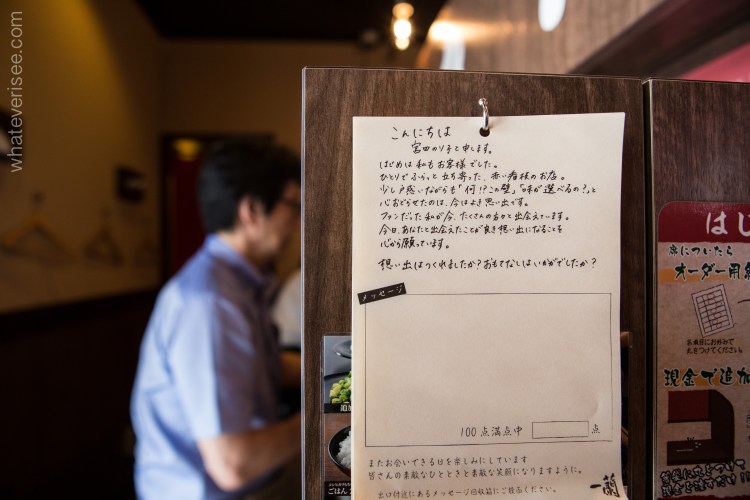 whateverisee.com
こんにちは
宮田のり子と申します。
はじめは私もお客様でした。
ひとりでふらっと立ち寄った、赤い看板のお店。
少し戸惑いながらも「何!?この壁」「味が選べるの?」と
心おどらせたのは、今はよき思い出です。
ファンだった私が今、たくさんの方々と出会えています。
今日、あなたと出会えたことが良き想い出になることを
心から願っています。
想い出はつくれましたか?おもてなしはいかがでしたか?
メッセージ
100点満点中
点
またお会いできる日を楽しみにしています
皆さんの素敵なひとときと素敵な笑顔になりますように。
出口付近にあるメッセージ回収箱にご投函ください。
追加
ごはん
はじ
席についたら
オーダー用紙
お席毎にお好みで
丸をつけてください。
現金で追加